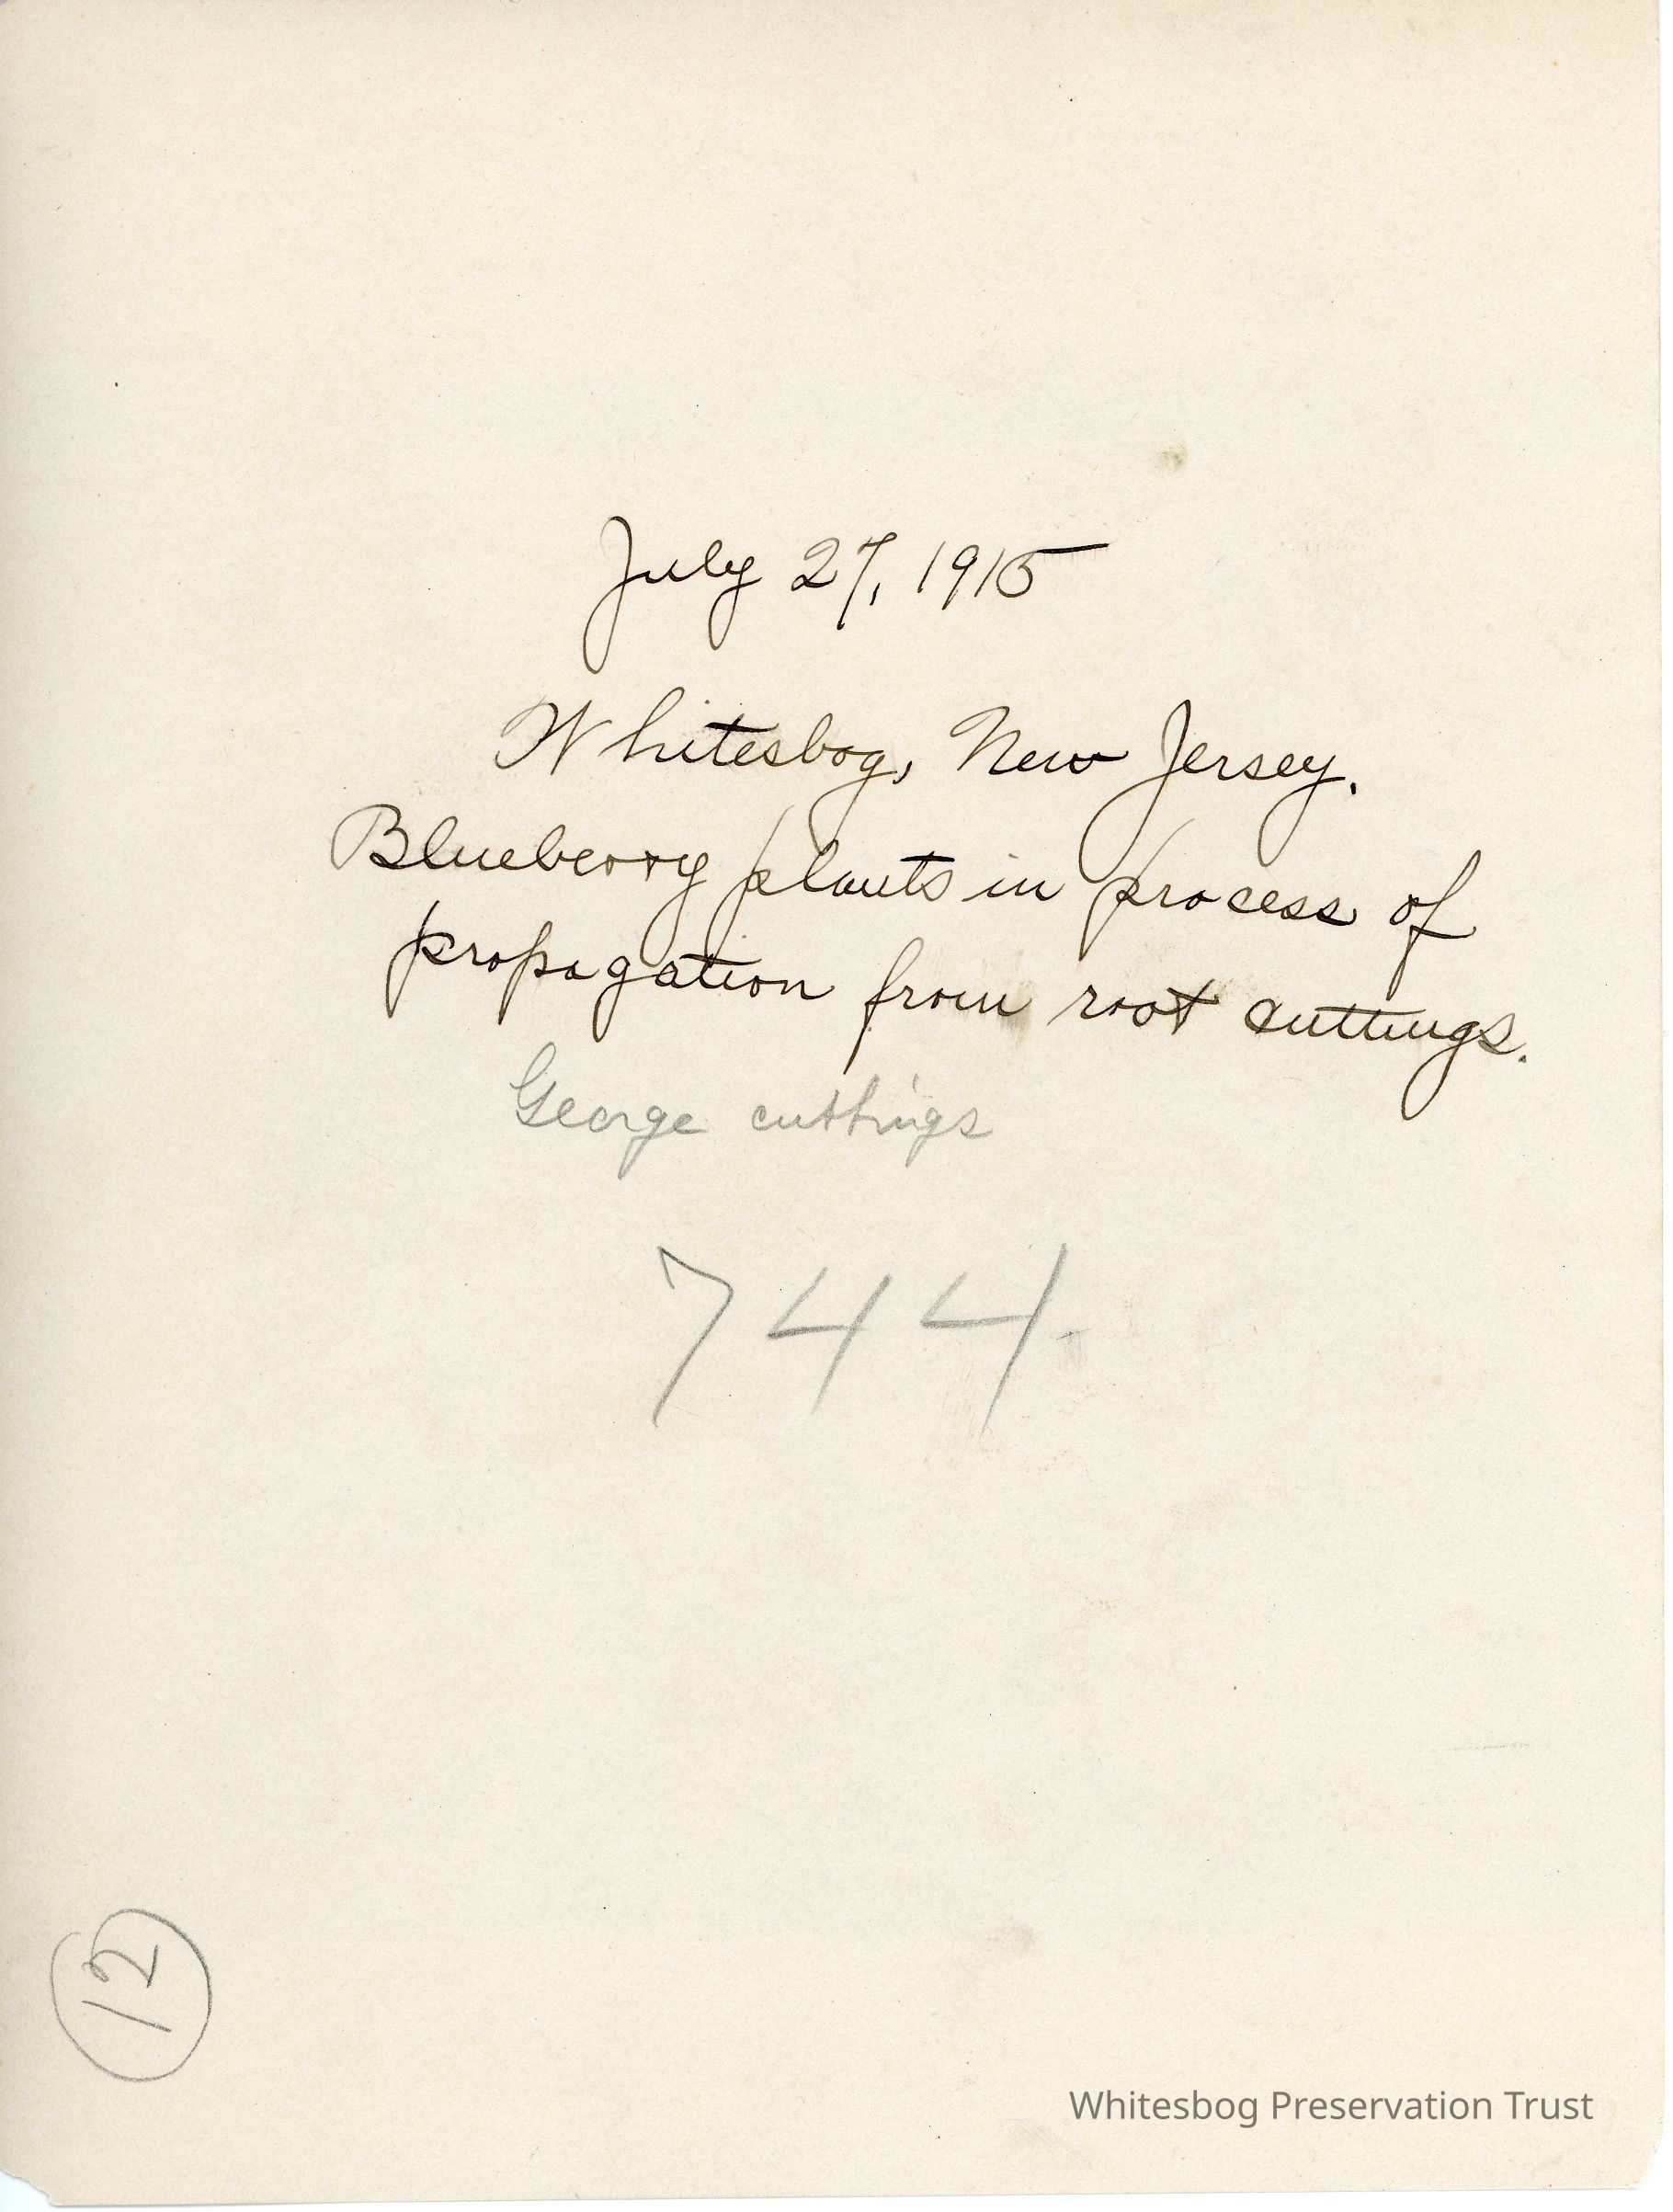 July 27, 1915
Whitesbog, New Jersey.
Blueberry plants in process of
propagation from root cuttings.
George cuttings
744.
12
Whitesbog Preservation Trust